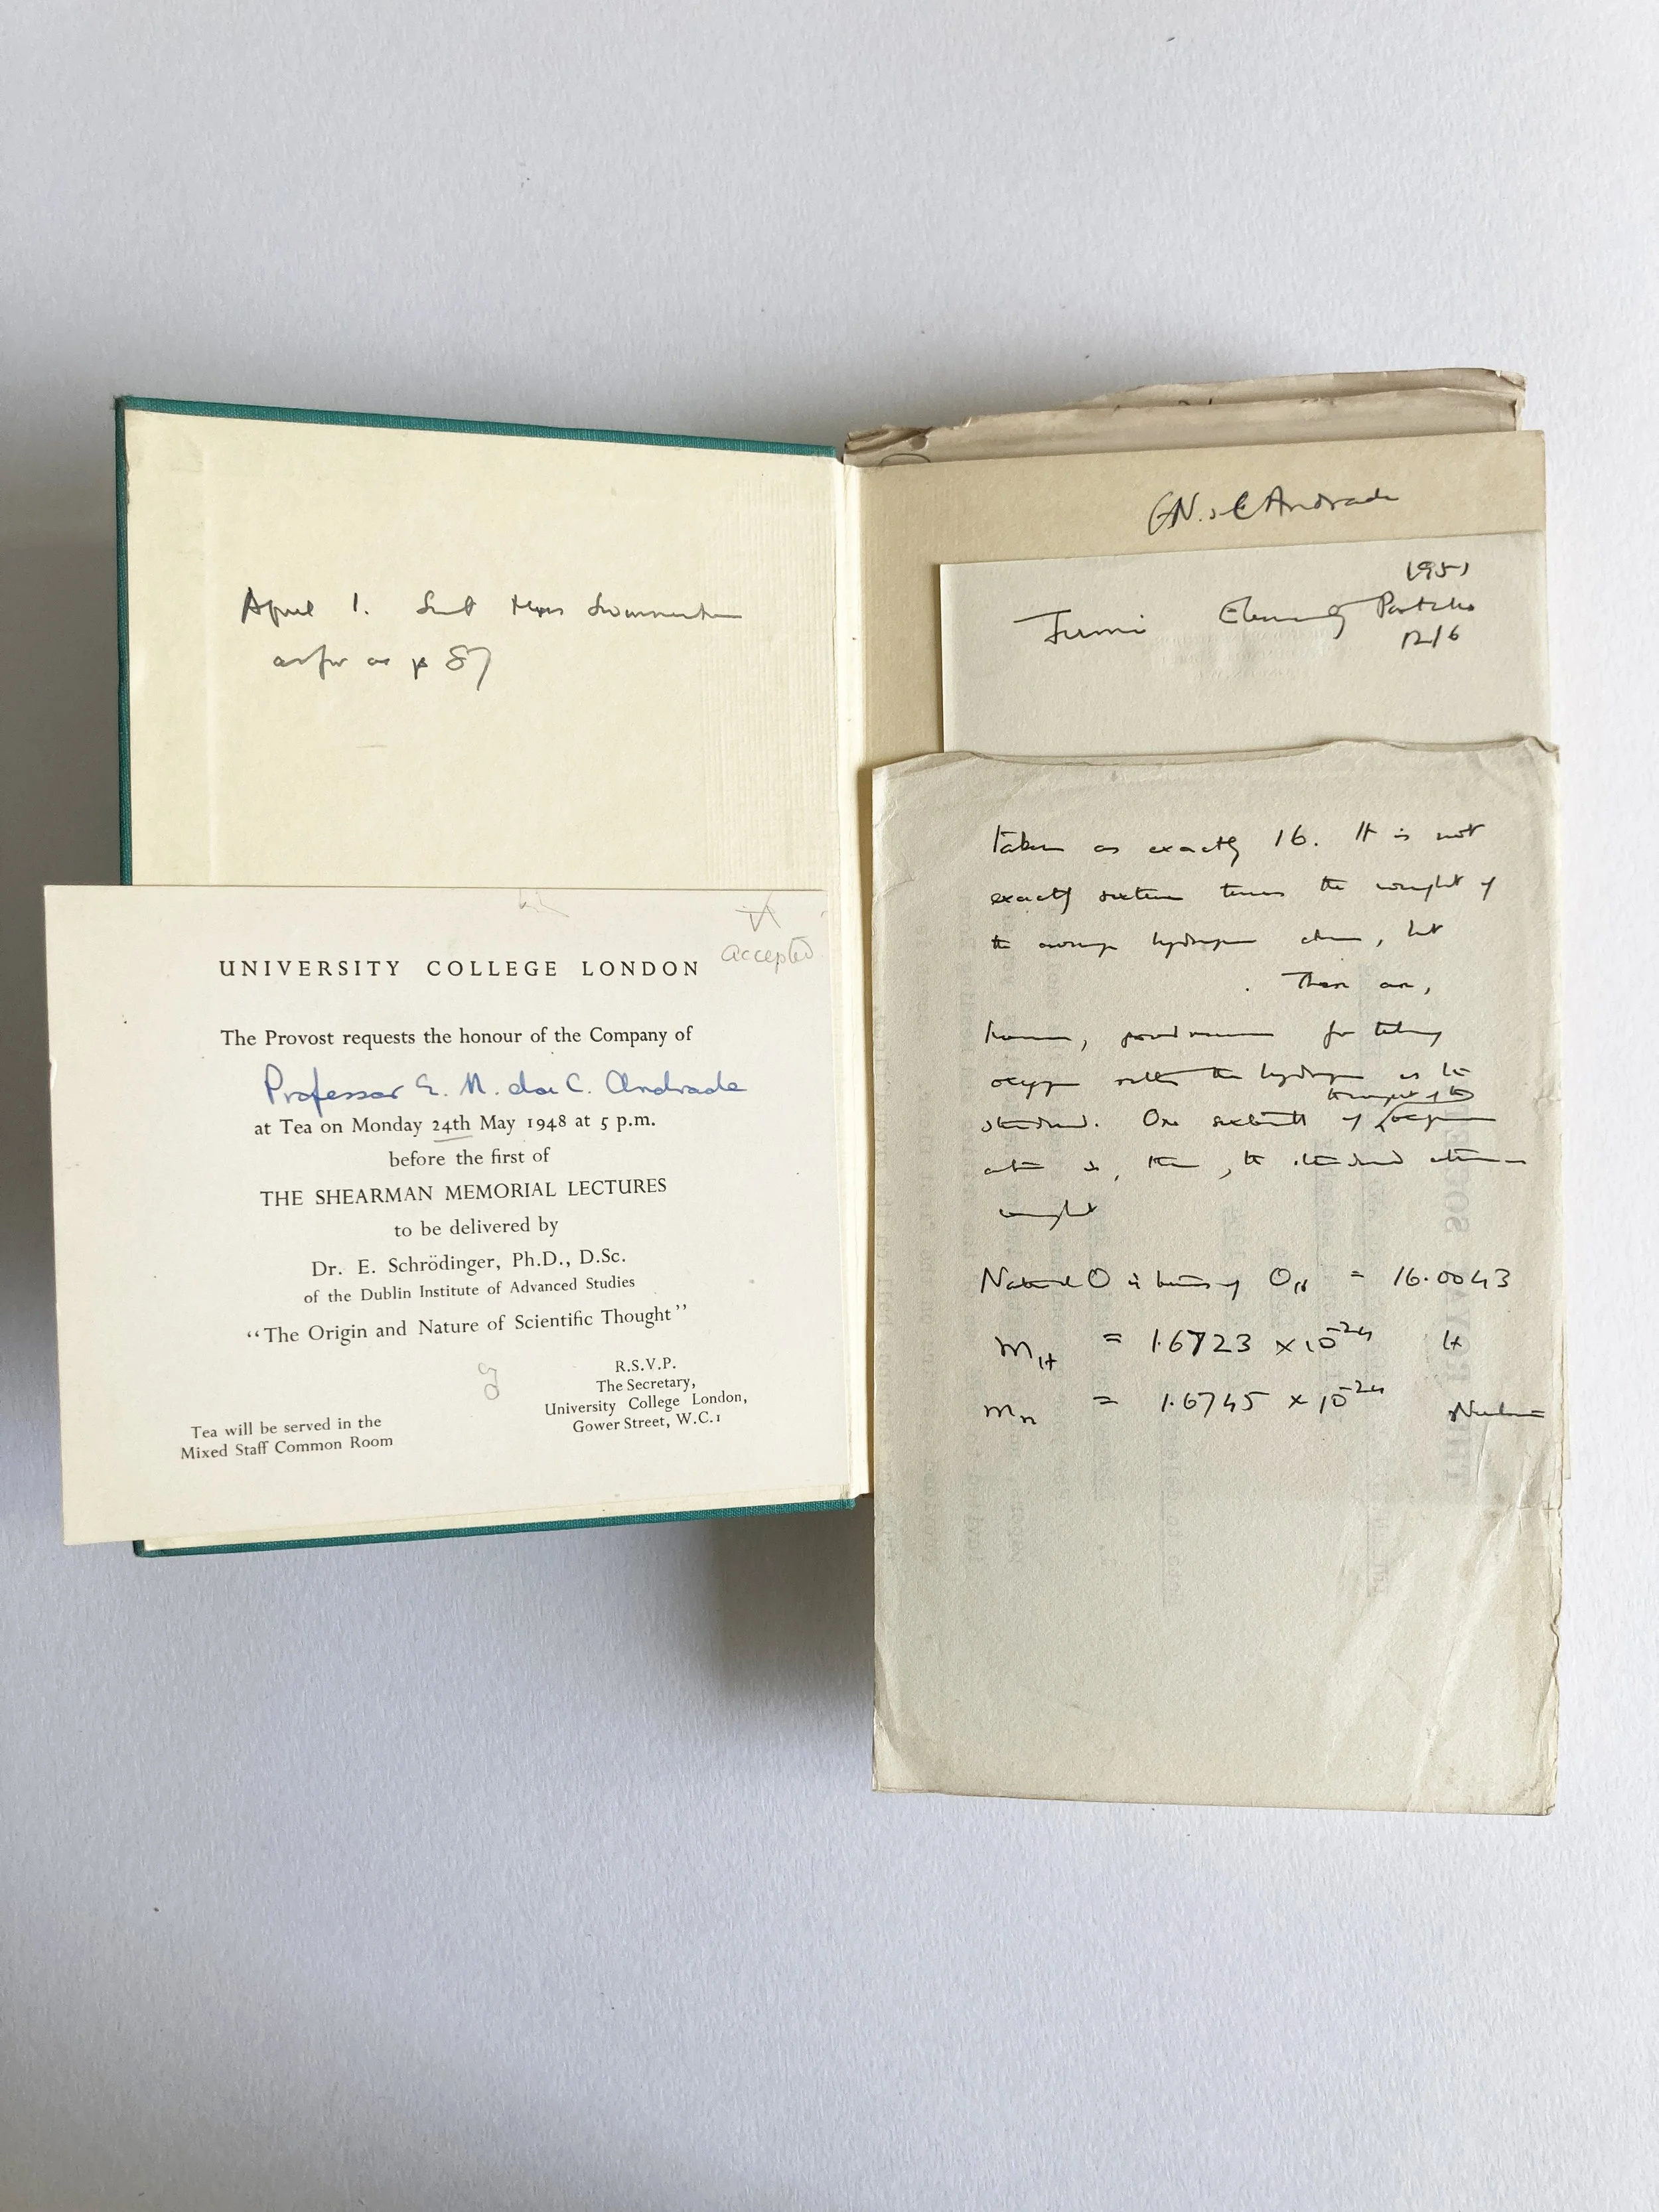 April 1. Sent Miss
as far as p 87
accepted
UNIVERSITY COLLEGE LONDON
The Provost requests the honour of the Company of
Professor E. N. da C. Andrade
at Tea on Monday 24th May 1948 at 5 p.m.
before the first of
THE SHEARMAN MEMORIAL LECTURES
to be delivered by
Dr. E. Schrödinger, Ph.D., D.Sc.
of the Dublin Institute of Advanced Studies
“The Origin and Nature of Scientific Thought”
R.S.V.P.
The Secretary,
University College London,
Gower Street, W.C.1
Tea will be served in the
Mixed Staff Common Room
EN. da C Andrade
1951
Fermi Elementary Particles
12/6
taken as exactly 16. It is not
exactly sixteen times the weight of
the average hydrogen atom, but
There are,
however, for taking
oxygen rather than hydrogen as the
standard. One sixteenth of the weight of the oxygen
atom is, then, the standard atomic
weight
Natural O in terms of O16 = 16.0043
mH = 1.6723 × 10-24 H
mn = 1.6745 × 10-24 Neutron